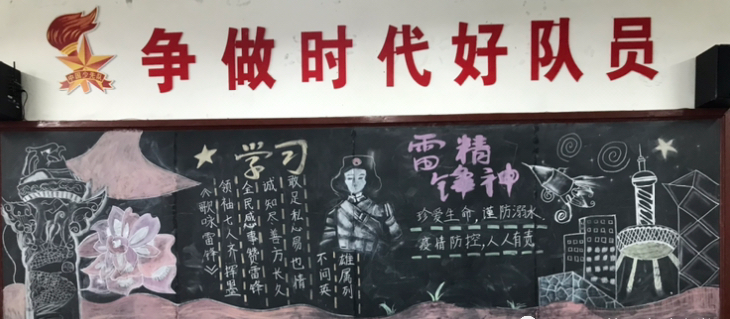 争做时代好队员
学习
雷锋精神
《歌咏雷锋》
领袖七人齐挥墨
全民感事赞雷锋
诚知尽善方长久
敢足私心也情
不问英
雄属列
珍爱生命,谨防溺水
疫情防控,人人有责